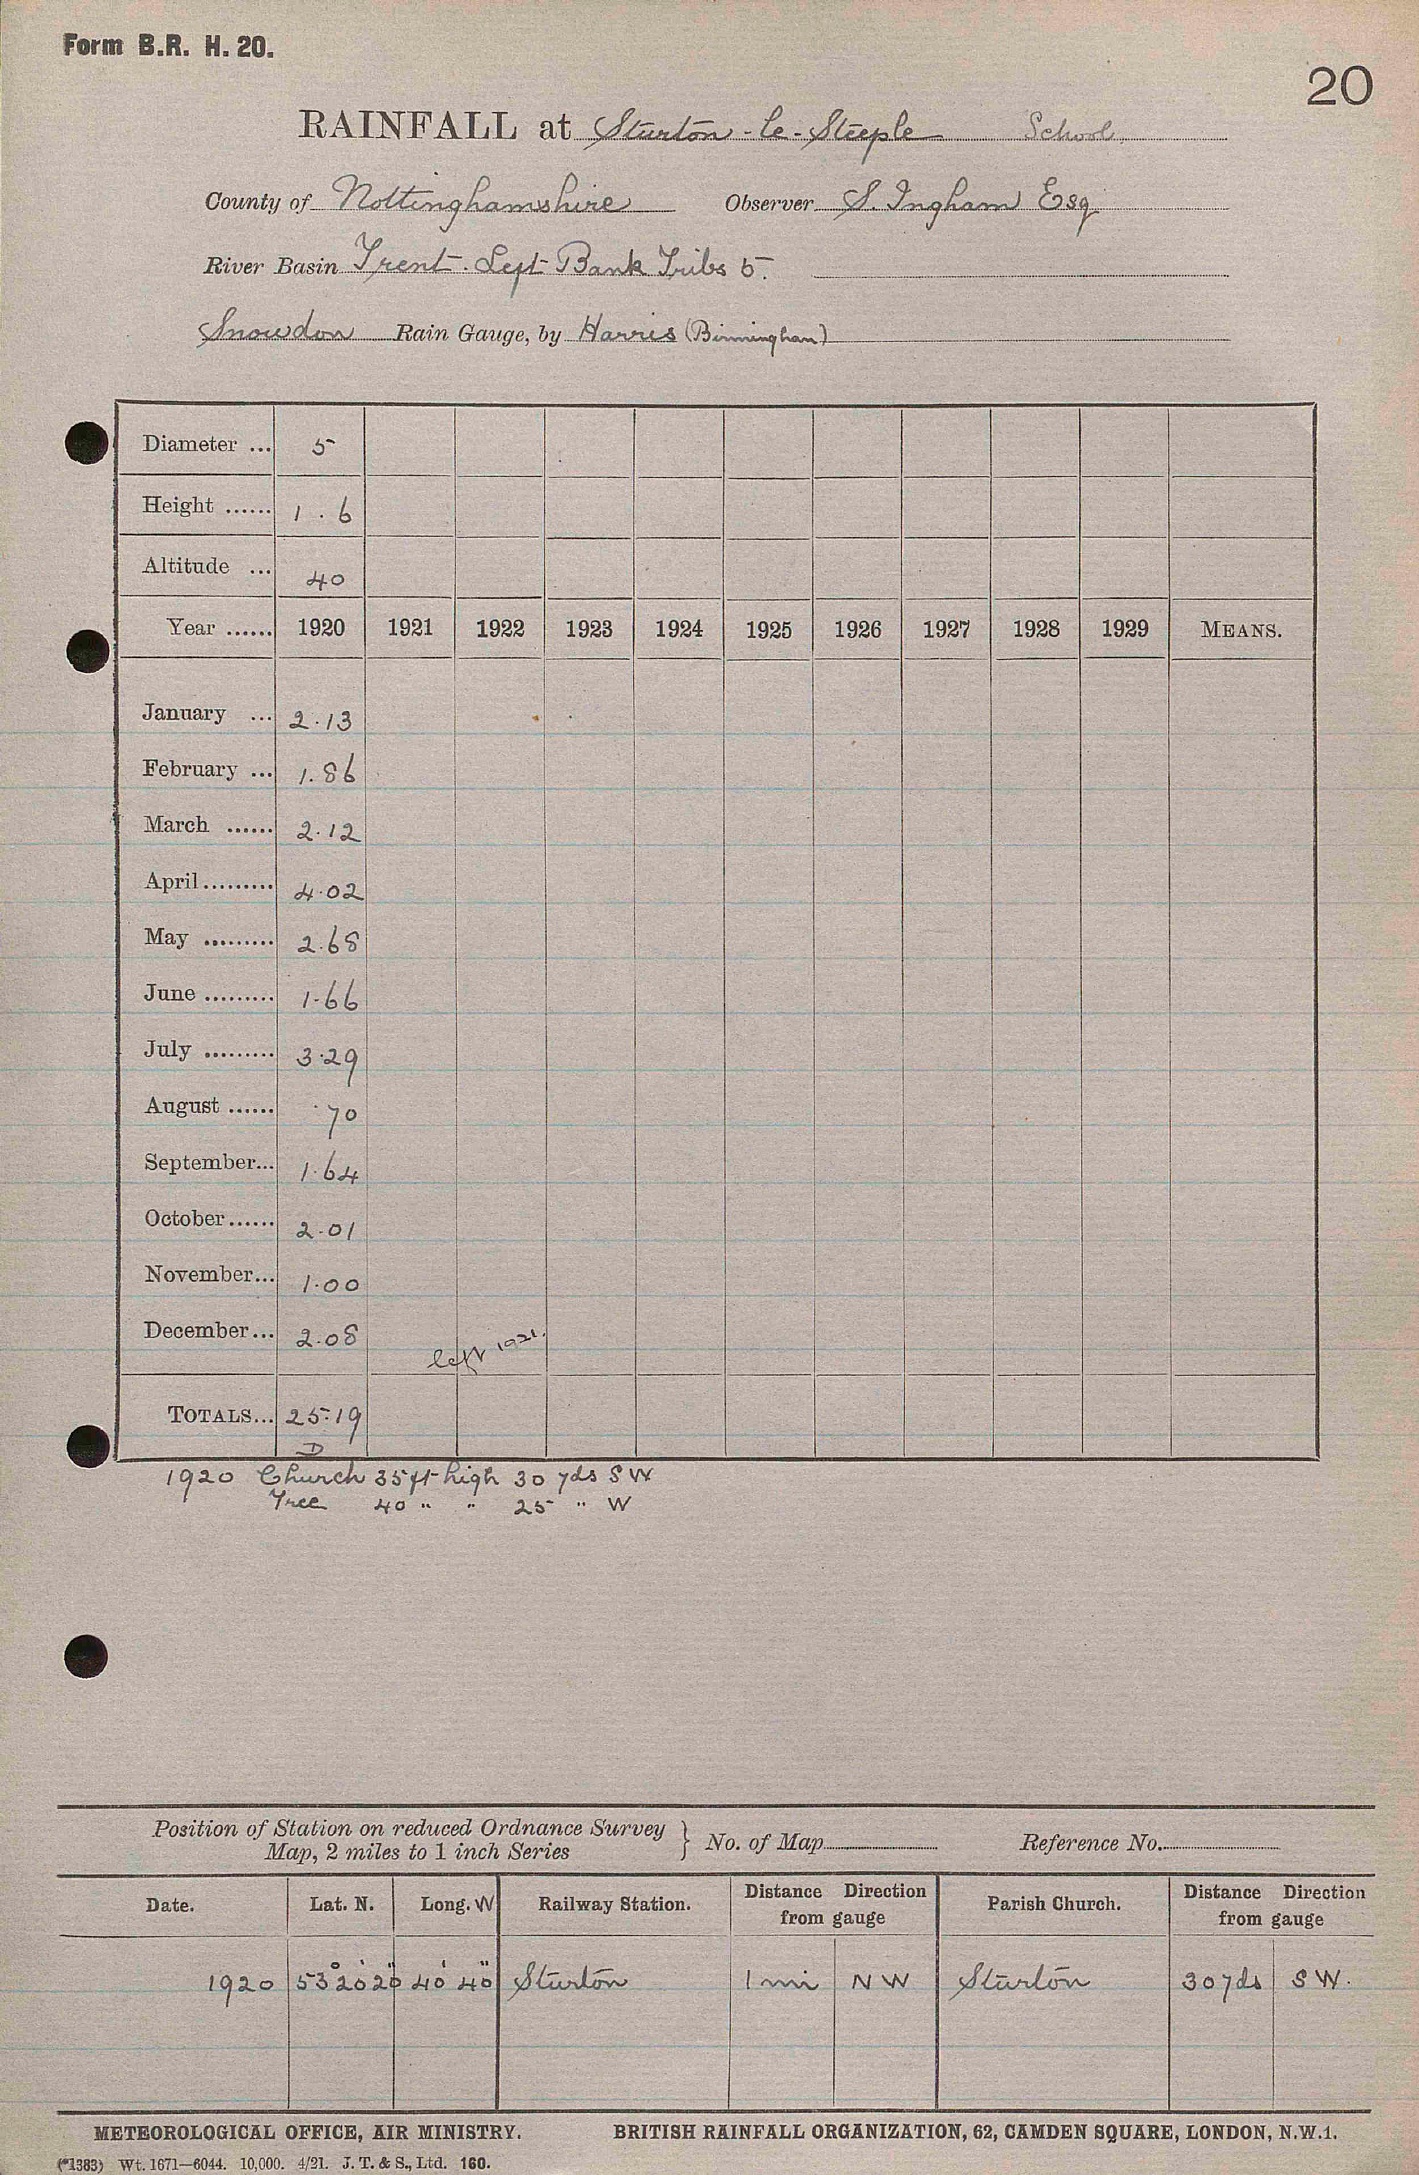 Form B.R. H. 20.
20
RAINFALL at Sturton-le-Steeple School
County of Nottinghamshire Observer S. Ingham Esq
River Basin Trent. Left Bank Tribs 5.
Snowdon Rain Gauge, by Harris (Birmingham)
Diameter ... 5
Height ...... 1 . 6
Altitude ... 40
Year ...... 1920 1921 1922 1923 1924 1925 1926 1927 1928 1929 MEANS.
January ... 2.13
February ... 1.86
March ...... 2.12
April ......... 4.02
May ......... 2.68
June ......... 1.66
July ......... 3.29
August ...... .70
September... 1.64
October ...... 2.01
November... 1.00
December... 2.08
left 1921.
TOTALS... 25.19
D
1920 Church 35 ft high 30 yds SW
Tree 40 " " 25 " W
Position of Station on reduced Ordnance Survey Map, 2 miles to 1 inch Series } No. of Map Reference No.
Date. Lat. N. Long. W Railway Station. Distance Direction from gauge Parish Church. Distance Direction from gauge
1920 53° 20' 20" 40' 40" Sturton 1 mi NW Sturton 30 yds SW.
METEOROLOGICAL OFFICE, AIR MINISTRY. BRITISH RAINFALL ORGANIZATION, 62, CAMDEN SQUARE, LONDON, N.W.1.
(*1383) Wt. 1671—6044. 10,000. 4/21. J. T. & S., Ltd. 160.